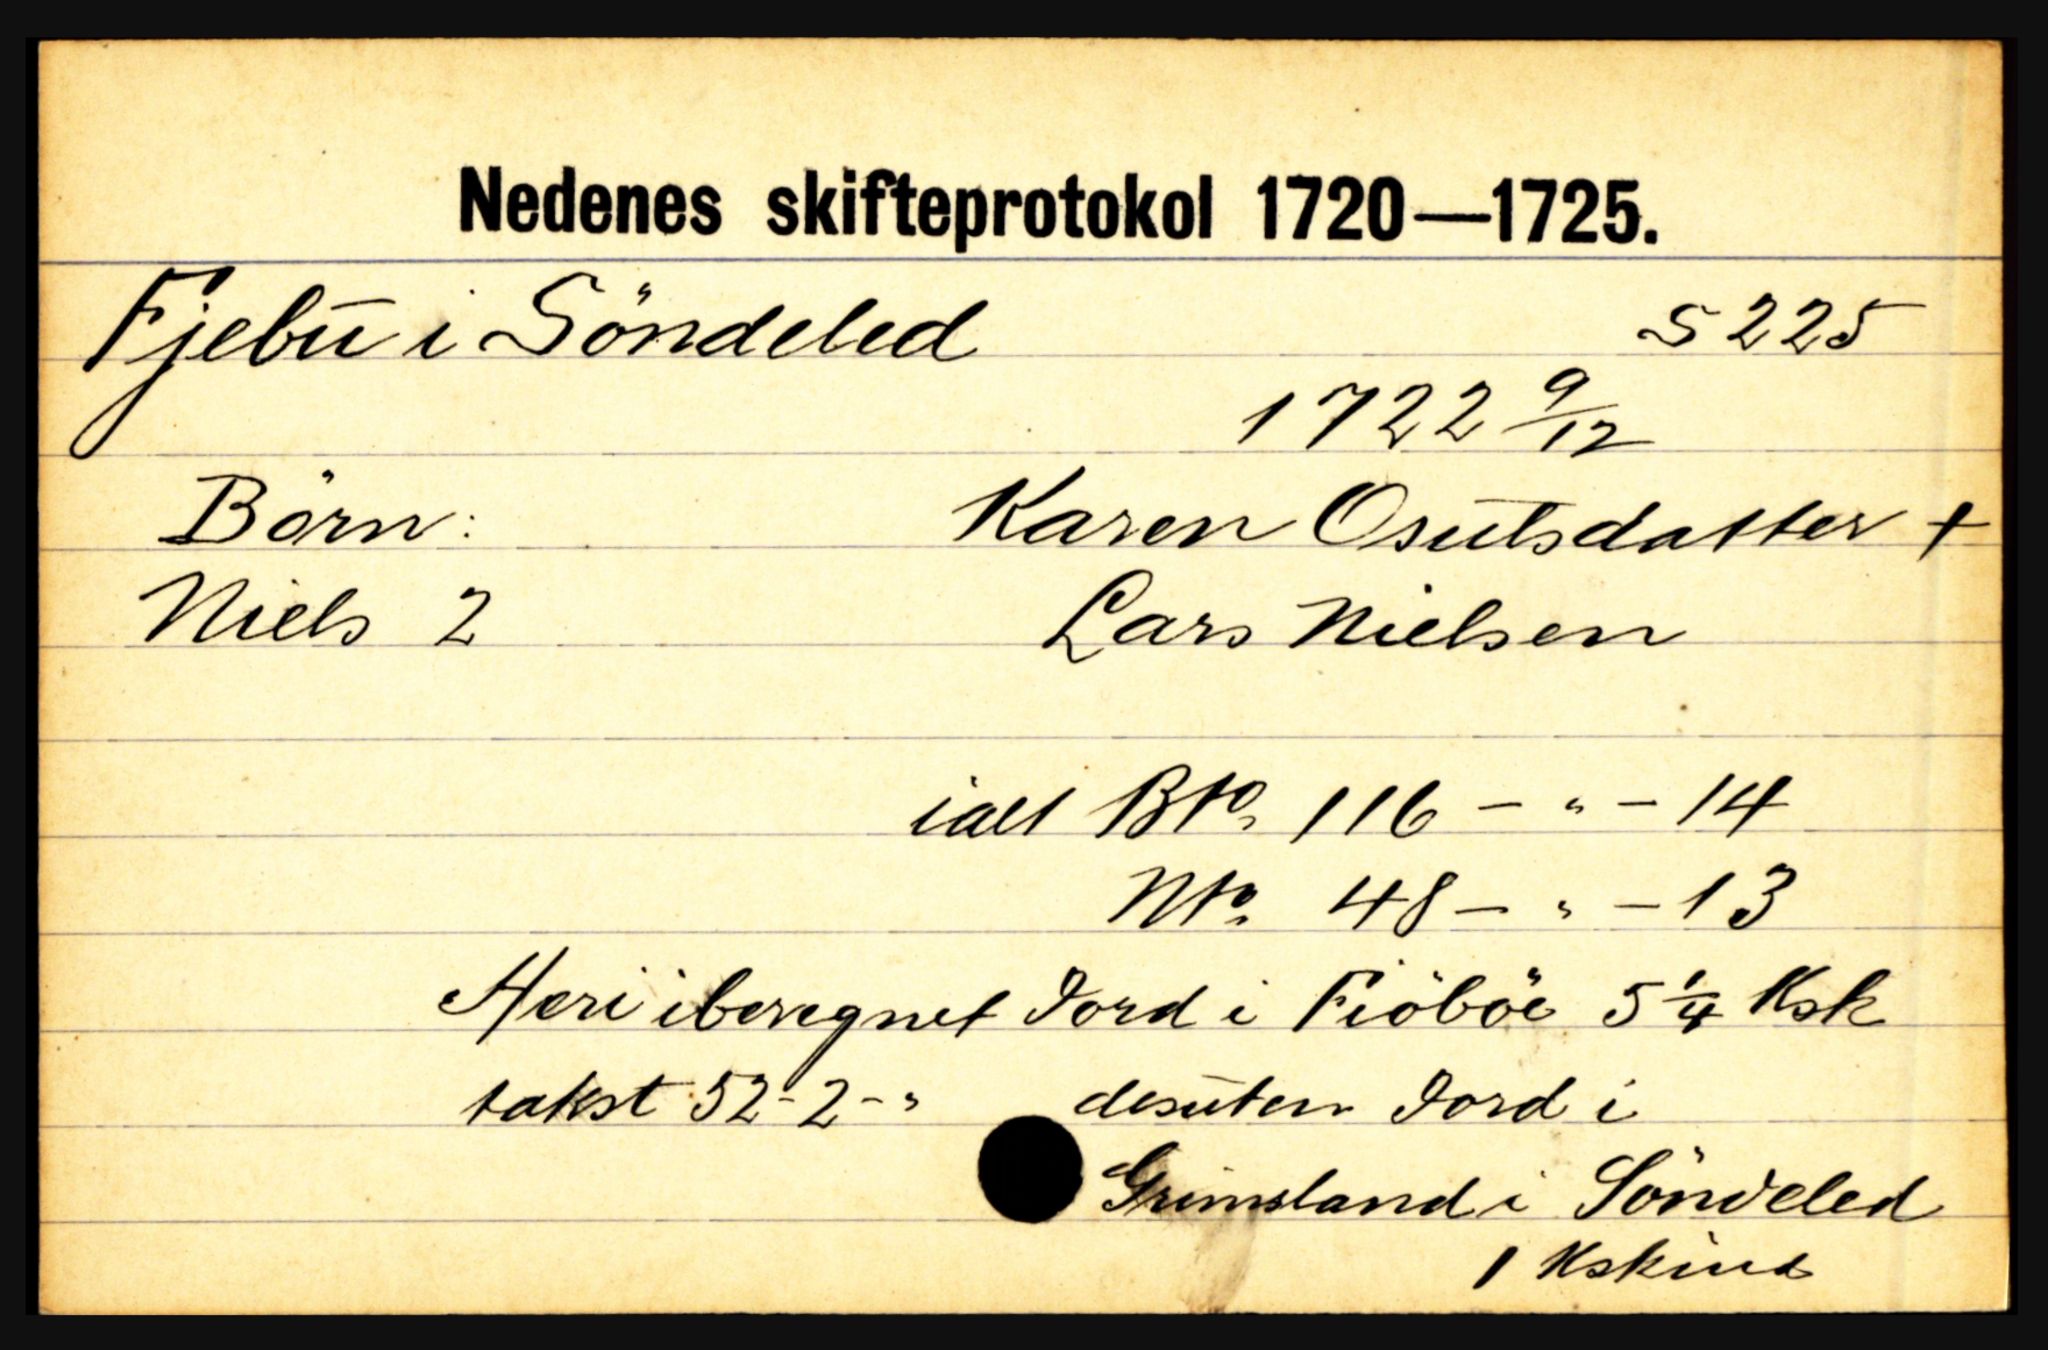 Nedenes skifteprotokol 1720—1725.
Fjebū i Söndeled S 225
1722 9/12
Börn: Karen Osūlsdatter +
Niels 2 Lars Nielsen
ialt Bto. 116 – " – 14
Nto. 48 – " – 13
Heri iberegnet Jord i Fiöböe 5 1/4 Ksk
takst 52 - 2 - " desūten Jord i
Grimsland i Söndeled
1 Kskind